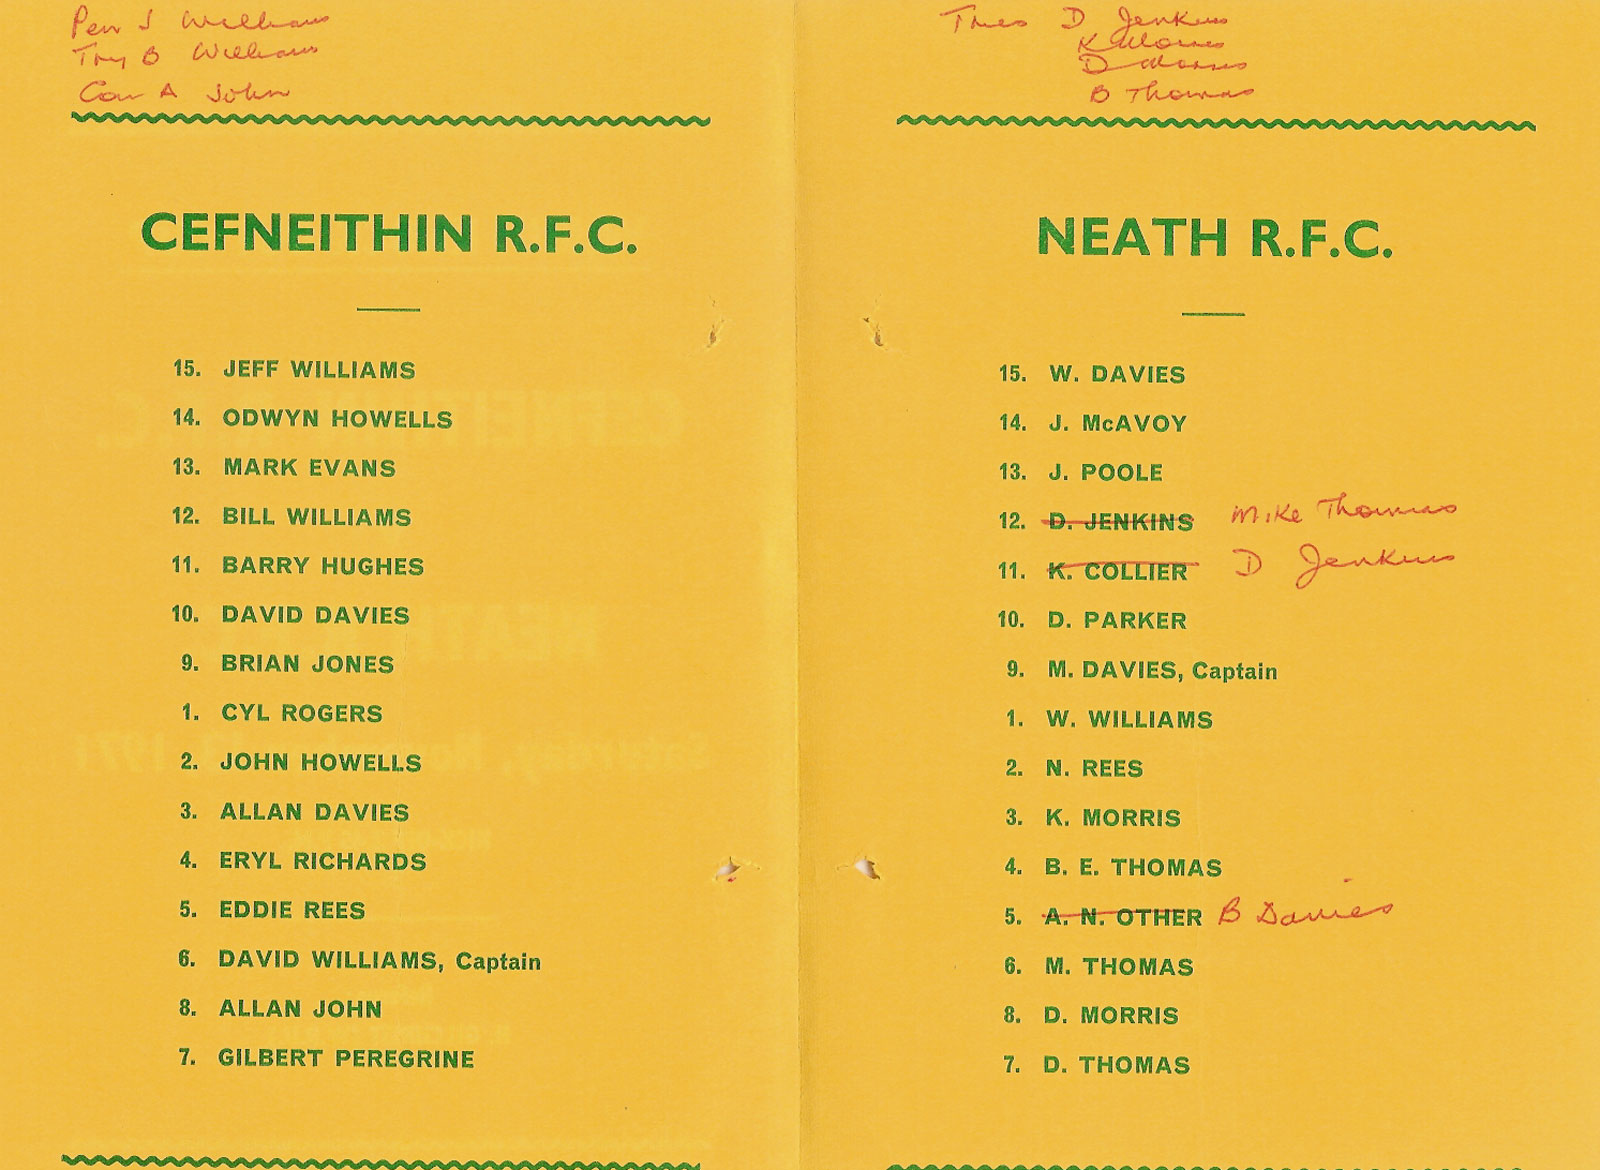 Pen J Williams
Try B Williams
Con A John
CEFNEITHIN R.F.C.
15. JEFF WILLIAMS
14. ODWYN HOWELLS
13. MARK EVANS
12. BILL WILLIAMS
11. BARRY HUGHES
10. DAVID DAVIES
9. BRIAN JONES
1. CYL ROGERS
2. JOHN HOWELLS
3. ALLAN DAVIES
4. ERYL RICHARDS
5. EDDIE REES
6. DAVID WILLIAMS, Captain
8. ALLAN JOHN
7. GILBERT PEREGRINE
D Jenkins
K Morris
D Morris
B Thomas
NEATH R.F.C.
15. W. DAVIES
14. J. McAVOY
13. J. POOLE
12. D. JENKINS Mike Thomas
11. K. COLLIER D Jenkins
10. D. PARKER
9. M. DAVIES, Captain
1. W. WILLIAMS
2. N. REES
3. K. MORRIS
4. B. E. THOMAS
5. A. N. OTHER B Davies
6. M. THOMAS
8. D. MORRIS
7. D. THOMAS